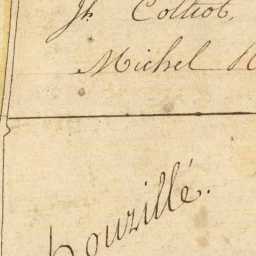 Jh Coltiob,
Michel
houzillé.